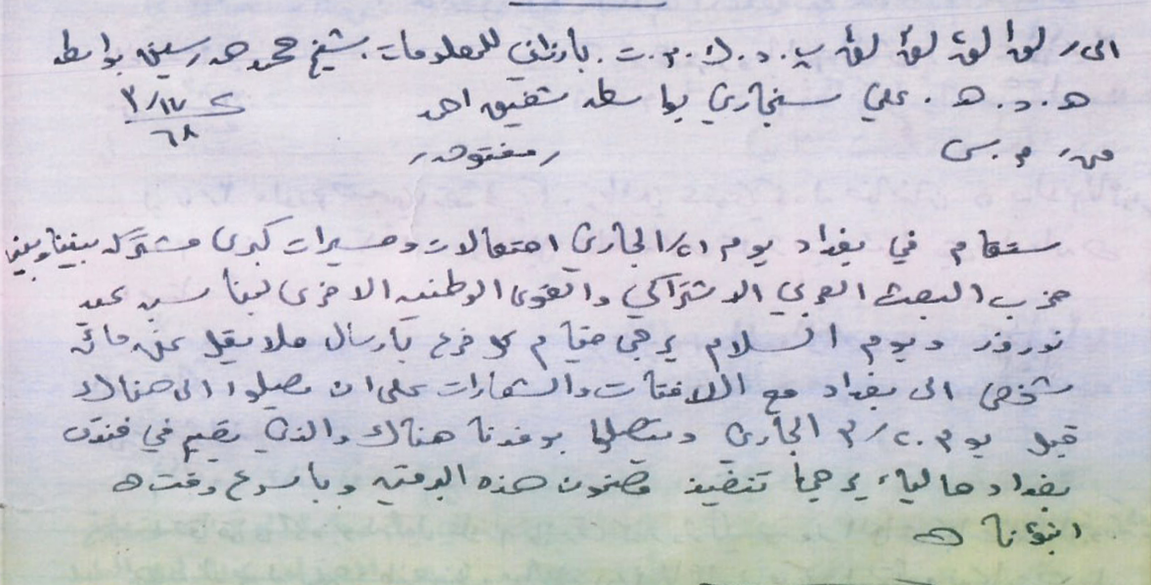 الى/ لق١ لق٢ لق٣ لق٤ پ. د. ك. م. ت. بارزاني للمعلومات. شيخ محمد هرسين بواسطة
ه. د. ه. علي سنجاري بواسطة شفيق احمد ١٧/٣
٦٨
من/ م. س /مفتوحه/
ستقام في بغداد يوم ٢١/ الجاري احتفالات ومسيرات كبرى مشتركة بيننا وبين
حزب البعث العربي الاشتراكي والقوى الوطنيه الاخرى لمناسبة عيد
نوروز ويوم السلام يرجى قيام كل فرع بارسال ملا يقل عن مائة
شخص الى بغداد مع اللافتات والشعارات على ان يصلوا الى هناك
قبل يوم ٢٠/٣ الجاري ويتصلوا بوفدنا هناك والذي يقيم في فندق
بغداد حاليا، يرجى تنفيذ مضمون هذه البرقيه وباسرع وقت ه
انبؤنا ه